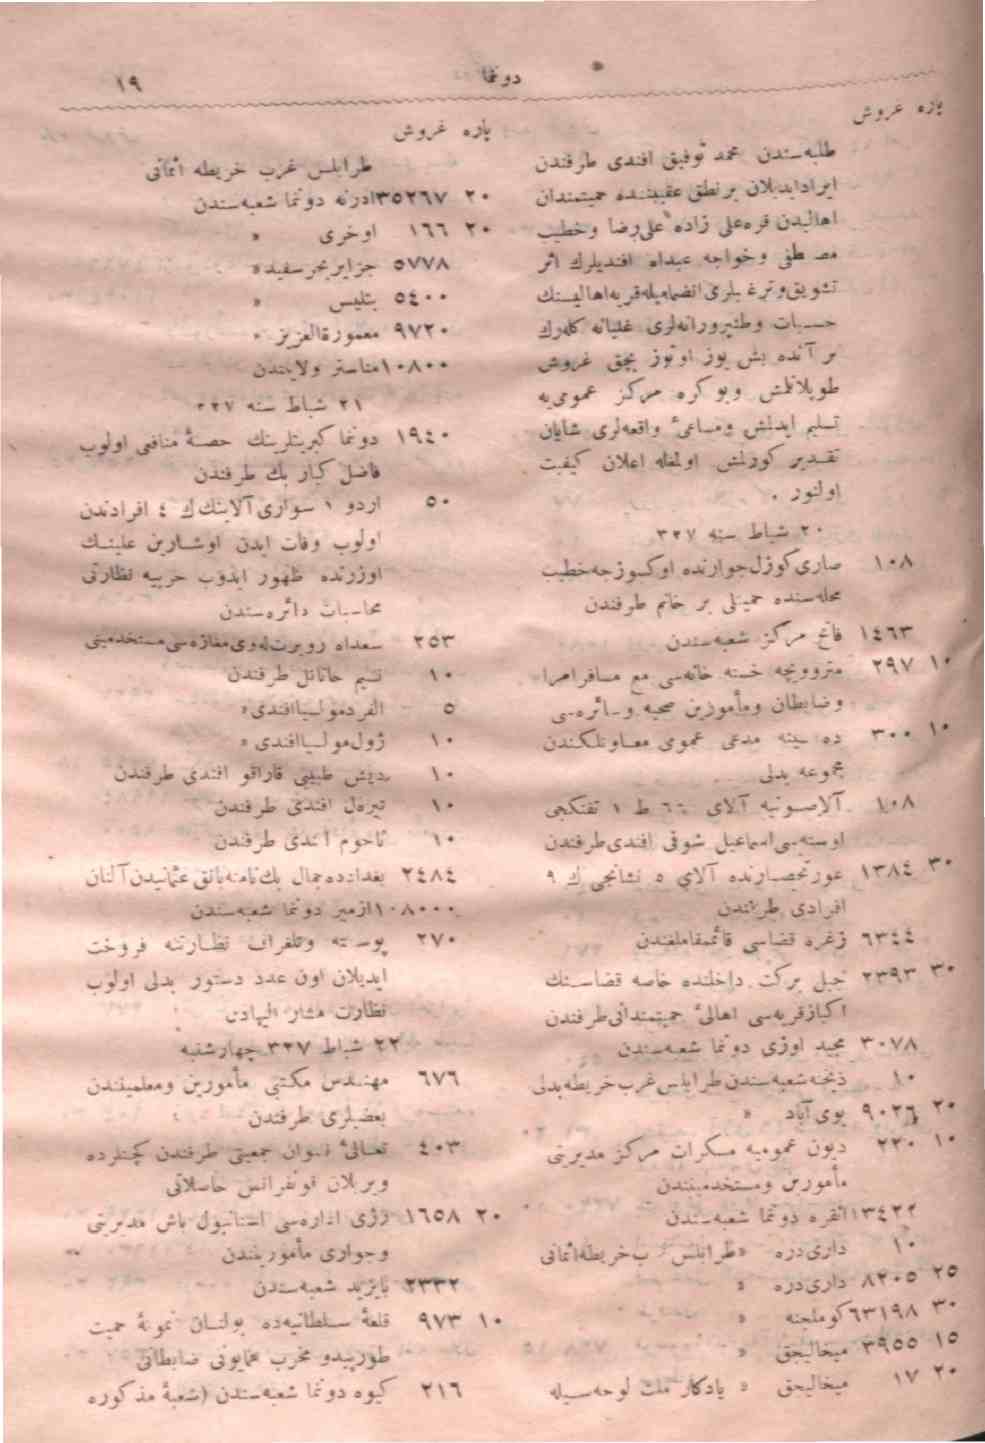 دونما
١٩
پاره غروش
طلبه‌سندن محمد توفیق افندی طرفندن
ایراد ایدیلان بر نطق عقیبنده حمیتمندان
اهالیدن قره‌علی زاده علی رضا و خطیب
مصطفی و خواجه عبدالله افندیلرك اثر
تشویق و ترغیبلری انضمامیله قریه اهالیسنك
حسیات وطنپرورانه‌لری غلیانه کله‌رك
بر آنده بش یوز اوتوز بچق غروش
طوپلانلمش و بو کره مرکز عمومی‌یه
تسلیم ایدلمش و مساعیٔ واقعه‌لری شایان
تقدیر کورلمش اولمغله اعلان کیفیت
اولنور .
٢٠ شباط سنه ٣٢٧
١٠٨ صاری کوزل جوارنده اوکسوزجه خطیب
محله‌سنده حمیتلی بر خانم طرفندن
١٤٦٣ فاتح مرکز شعبه‌سندن
١٠ ٢٩٧ متروویچه خسته خانه‌سی مع مسافر امرا
و ضابطان و مأمورین صحیه و سائره‌سی
١٠ ٣٠٠ مدعی عمومی معاونلکندن
مجموعه بدلی
١٠٨ آلاصونیه آلای ٦٦ ط ١ تفنکجی
اوسته‌سی اسماعیل شوقی افندی طرفندن
٣٠ ١٣٨٤ آلای ٥ نشانجی ك ٩
افرادی طرفندن
٦٣٤٤ زغره قضاسی قائممقاملغندن
٣٠ ٢٣٩٣ جبل برکت داخلنده خاصه قضاسنك
اکبار قریه‌سی اهالیٔ حمیتمندانی طرفندن
٣٠٧٨ مجید اوزی دونما شعبه‌سندن
١٠ شعبه‌سندن طرابلس غرب خریطه بدلی
٢٠ ٩٠٢٦ بوی آباد »
١٠ ٢٢٠ دیون عمومیه مسکرات مرکز مدیریتی
مأمورین و مستخدمیندن
١٣٤٢٢ انقره دونما شعبه‌سندن
١٠ داری دره » طرابلس غرب خریطه اثمانی
٢٥ ٨٢٠٥ داری دره »
٣٠ ٦٣١٩٨ کوملجنه »
١٥ ٣٩٥٥ میخالیجق »
٢٠ ١٧ میخالیجق » یادکار ملت لوحه‌سیله
پاره غروش
طرابلس غرب خریطه اثمانی
٢٠ ٣٥٢٦٧ ادرنه دونما شعبه‌سندن
٢٠ ١٦٦ اوخری »
٥٧٧٨ جزایر بحر سفید »
٥٤٠٠ بتلیس »
٩٧٢٠ معمورة‌العزیز »
١٠٨٠٠ مناستر ولایتندن
٢١ شباط سنه ٣٢٧
١٩٤٠ دونما کبریتلرینك حصهٔ منافعی اولوب
فاضل کبار بك طرفندن
٥٠ اردو ١ سواری آلاینك ك ٤ افرادندن
اولوب وفات ایدن علینك
اوزرنده ظهور ایدوب حربیه نظارتی
محاسبات دائره‌سندن
٢٥٣ سعدالله روبرت له‌وی مغازه‌سی مستخدمینی
١٠ نسیم حاناتل طرفندن
٥ الفرد مولیا افندی »
١٠ ژول مولیا افندی »
١٠ دیش طبیبی قاراقو افندی طرفندن
١٠ افندی طرفندن
١٠ ناحوم افندی طرفندن
٢٤٨٤ بغدادده جمال بك نامنه بانق عثمانیدن آلنان
١٠٨٠٠٠ ازمیر دونما شعبه‌سندن
٢٧٠ پوسته و تلغراف نظارتنه فروخت
ایدیلان اون عدد دستور بدلی اولوب
نظارت مشار الیهادن
٢٢ شباط ٣٢٧ چهارشنبه
٦٧٦ مهندس مکتبی مأمورین و معلمیندن
بعضیلری طرفندن
٤٠٣ تعالیٔ نسوان جمعیتی طرفندن کچنلرده
ویریلان قونفرانس حاصلاتی
٢٠ ١٦٥٨ رژی اداره‌سی استانبول باش مدیریتی
و جواری مأموریندن
٢٣٣٢ بایزید شعبه‌سندن
١٠ ٩٧٣ قلعهٔ سلطانیه‌ده بولنان نمونهٔ حمیت
طورپیدو مخرب همایونی ضابطانی
٢١٦ کیوه دونما شعبه‌سندن (شعبهٔ مذکوره